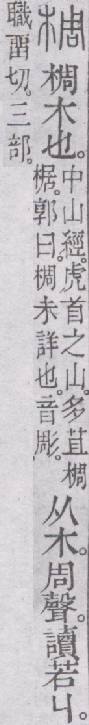 椆 椆木也。中山經。虎首之山。多苴椆椐。郭曰。椆未詳也。音彫。从木。周聲。讀若丩。
職畱切。三部。